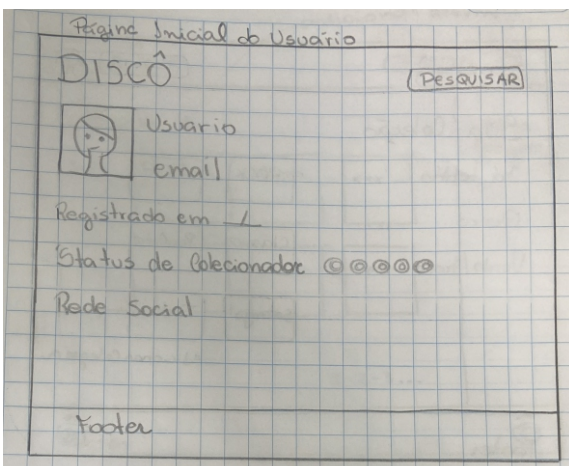 Página Inicial do Usuário
DISCÔ
PESQUISAR
Usuario
email
Registrado em
Status de Colecionador
Rede Social
Footer